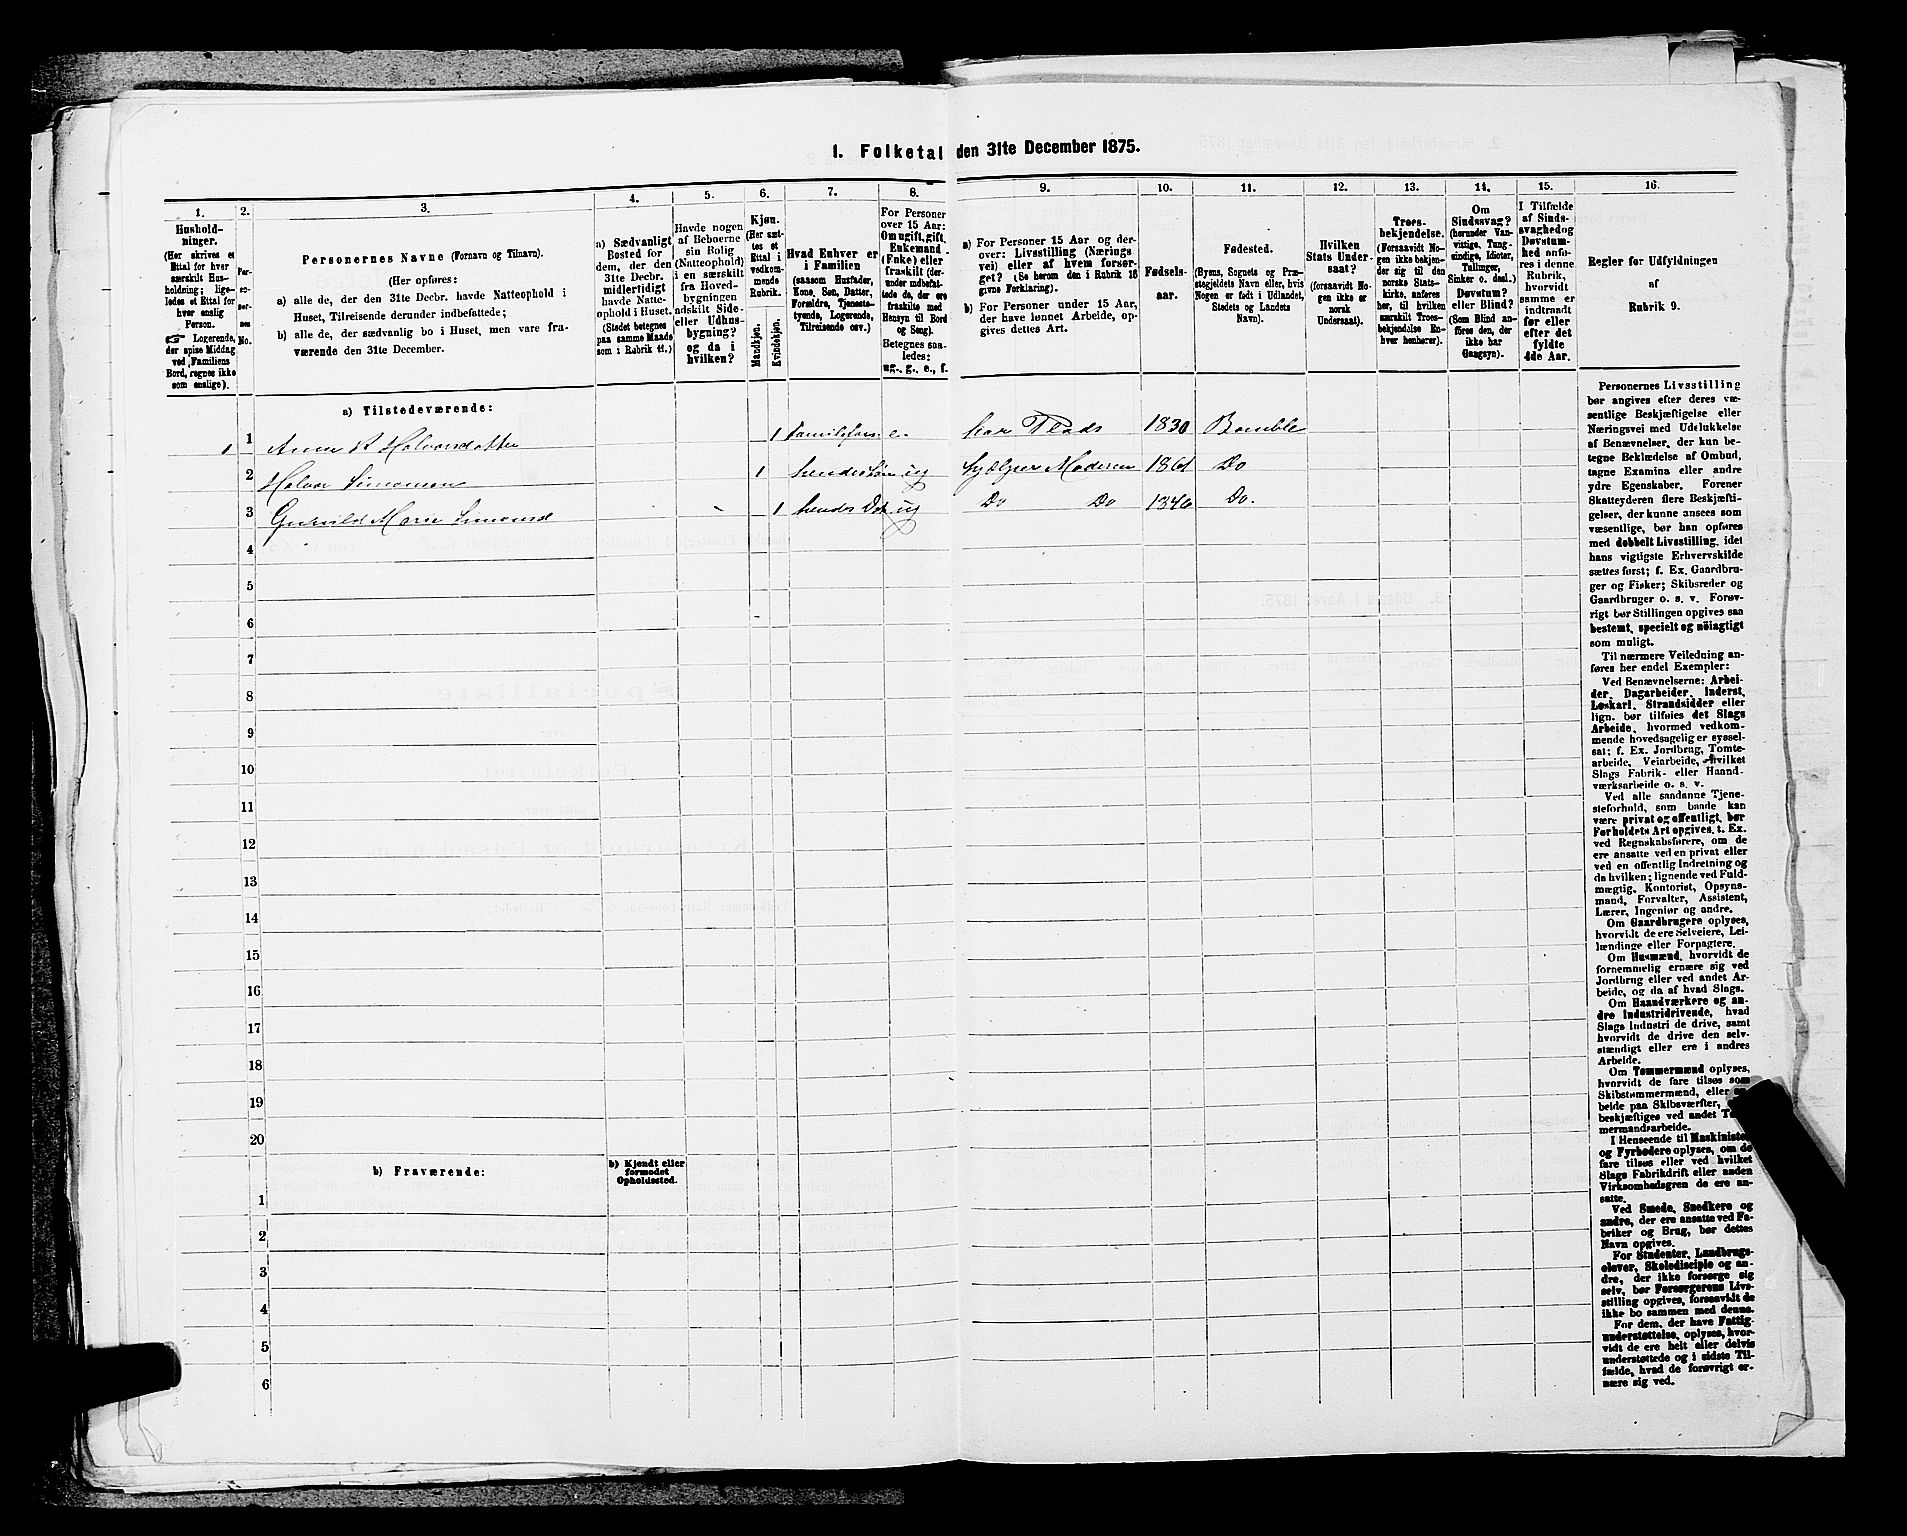 1. Folketal den 31te December 1875.
1.
Hushold-
ninger.
(Her skrives et
Ettal for hver
særskilt Hus-
holdning; lige-
ledes et Ettal for
hver enslig
Person.
☞ Logerende,
der spise Middag
ved Familiens
Bord, regnes ikke
som enslige).
2.
Per-
so-
ner-
nes
No.
3.
Personernes Navne (Fornavn og Tilnavn).
(Her opføres:
a) alle de, der den 31te Decbr. havde Natteophold i
Huset, Tilreisende derunder indbefattede;
b) alle de, der sædvanlig bo i Huset, men vare fra-
værende den 31te December.
4.
a) Sædvanligt
Bosted for
dem, der den
31te Decbr.
midlertidigt
havde Natte-
ophold i Huset.
(Stedet betegnes
paa samme Maade
som i Rubrik 11.)
5.
Havde nogen
af Beboerne
sin Bolig
(Natteophold)
i en særskilt
fra Hoved-
bygningen
adskilt Side-
eller Udhus-
bygning?
og da i
hvilken?
6.
Kjøn.
(Her sæt-
tes et
Ettal i
vedkom-
mende
Rubrik.
Mandkjøn.
Kvindekjøn.
7.
Hvad Enhver er
i Familien
(saasom Husfader,
Kone, Søn, Datter,
Forældre, Tjeneste-
tyende, Logerende,
Tilreisende osv.)
8.
For Personer
over 15 Aar:
Om ugift, gift,
Enkemand
(Enke) eller
fraskilt (der-
under indbefat-
tede de, der ere
fraskilte med
Hensyn til Bord
og Seng).
Betegnes saa-
ledes:
ug., g., e., f.
9.
a) For Personer 15 Aar og der-
over: Livsstilling (Nærings
vei) eller af hvem forsør-
get? (Se herom den i Rubrik 16
givne Forklaring).
b) For Personer under 15 Aar,
der have lønnet Arbeide, op-
gives dettes Art.
10.
Fødsels-
aar.
11.
Fødested.
(Byens, Sognets og Præ-
stegjeldets Navn eller, hvis
Nogen er født i Udlandet,
Stedets og Landets
Navn).
12.
Hvilken
Stats Under-
saat?
(forsaavidt No-
gen ikke er
norsk
Undersaat).
13.
Troes-
bekjendelse.
(Forsaavidt No-
gen ikke bekjen-
der sig til den
norske Stats-
kirke, anføres
her, til hvilken
særskilt Troes-
bekjendelse En-
hver henhører).
14.
Om
Sindssvag?
(herunder Van-
vittige, Tung-
sindige, Idioter,
Tullinger,
Sinker o. desl.)
Døvstum?
eller Blind?
(Som Blind an-
føres den, der
ikke har
Gangsyn).
15.
I Tilfælde
af Sinds-
svaghed og
Døvstum-
hed anfø-
res i denne
Rubrik,
hvorvidt
samme er
indtraadt
før eller
efter det
fyldte
4de Aar.
16.
Regler for Udfyldningen
af
Rubrik 9.
a) Tilstedeværende:
1 1 Anne K Halvorsdatter 1 e. har Plads 1830 Bamble
2 Halvor Simonsen 1 hendes Søn ug hjælper Moderen 1861 Do
3 Gunild Marie Simonsd 1 hendes Dat ug Do Do 1846 Do.
4
5
6
7
8
9
10
11
12
13
14
15
16
17
18
19
20
b) Fraværende:
b) Kjendt eller
formodet
Opholdssted.
1
2
3
4
5
6
Personernes Livsstilling
bør angives efter deres væ-
sentlige Beskjæftigelse eller
Næringsvei med Udelukkelse
af Benævnelser, der kun be-
tegne Beklædelse af Ombud,
tagne Examina eller andre
ydre Egenskaber. Forener
Skatteyderen flere Beskjæfti-
gelser, der kunne ansees som
væsentlige, bør han opføres
med dobbelt Livsstilling, idet
hans vigtigste Erhvervskilde
sættes først; f. Ex. Gaardbru-
ger og Fisker; Skibsreder og
Gaardbruger o. s. v. Forøv-
rigt bør Stillingen opgives saa
bestemt, specielt og nöiagtigt
som muligt.
Til nærmere Veiledning an-
føres her endel Exempler:
Ved Benævnelserne: Arbei-
der, Dagarbeider, Inderst,
Løskarl, Strandsidder eller
lign. bør tilføies det Slags
Arbeide, hvormed vedkom-
mende hovedsagelig er syssel-
sat; f. Ex. Jordbrug, Tomte-
arbeide, Veiarbeide, hvilket
Slags Fabrik- eller Haand-
værksarbeide o. s. v.
Ved alle saadanne Tjene-
steforhold, som baade kan
være privat og offentligt, bør
Forholdets Art opgives, t. Ex.
ved Regnskabsførere, om de
ere ansatte ved en privat eller
ved en offentlig Indretning og
da hvilken; lignende ved Fuld-
mægtig, Kontorist, Opsyns-
mand, Forvalter, Assistent,
Lærer, Ingeniør og andre.
Om Gaardbrugere oplyses,
hvorvidt de ere Selveiere, Lei-
lændinge eller Forpagtere.
Om Husmænd, hvorvidt de
fornemmelig ernære sig ved
Jordbrug eller ved andet Ar-
beide, og da af hvad Slags.
Om Haandværkere og an-
dre Industridrivende, hvad
Slags Industri de drive, samt
hvorvidt de drive den selv-
stændigt eller ere i andres
Arbeide.
Om Tømmermænd oplyses,
hvorvidt de fare tilsøs som
Skibstømmermænd, eller
beide paa Skibsværfter,
beskjæftiges ved andet
mermandsarbeide.
I Henseende til Maskinister
og Fyrbødere oplyses, om de
fare tilsøs eller ved hvilket
Slags Fabrikdrift eller anden
Virksomhedsgren de ere an-
satte.
Ved Smede, Snedkere og
andre, der ere ansatte ved Fa-
briker og Brug, bør dettes
Navn opgives.
For Studenter, Landbrugs-
elever, Skoledisciple og an-
dre, der ikke forsørge sig
selv, bør Forsørgerens Livs-
stilling opgives, forsaavidt de
ikke bo sammen med denne.
For dem, der have Fattig-
understøttelse, oplyses, hvor-
vidt de ere helt eller delvis
understøttede og i sidste Til-
fælde, hvad de forøvrigt er-
nære sig ved.